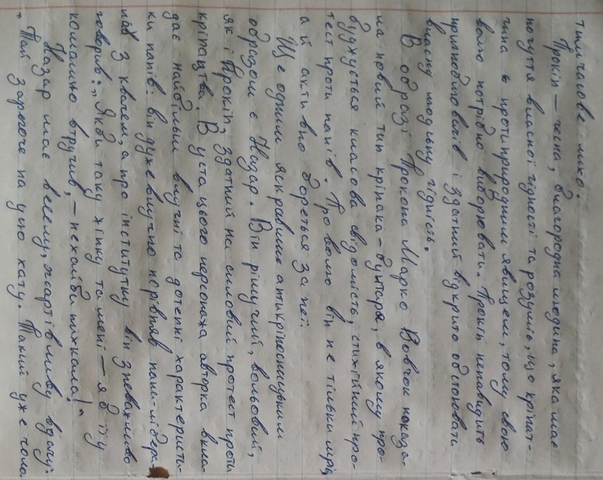 тимчасове лихо.
Прокіп – чесна, благородна людина, яка має
почуття власної гідності та розуміє, що кріпат-
чина є протиприродним явищем, тому свою
волю потрібно виборювати. Прокіп ненавидить
гнобителів і здатний відкрито обстоювати
власну людську гідність.
В образі Прокопа Марко Вовчок показа-
ла новий тип кріпака-бунтаря, в якому про-
буджується класова свідомість, стихійний про-
тест проти панів. Про волю він не тільки мріє,
а й активно бореться за неї.
Ще одним яскравим антикріпосницьким
образом є Назар. Він рішучий, вольовий,
як і Прокіп, здатний на сміливий протест проти
кріпацтва. В уста цього персонажа авторка вкла-
дає найбільш влучні та дотепні характеристи-
ки панів: він дуже влучно порівняв пана-лікаря
з квачем, а про інститутку він зневажливо
говорив: „Якби таку жінку та мені – я б її у
комашню втрутив, – нехай би пихкала!“
Назар має веселу, жартівливу вдачу:
„Пан зарегоче на усю хату. Такий уже чоло-